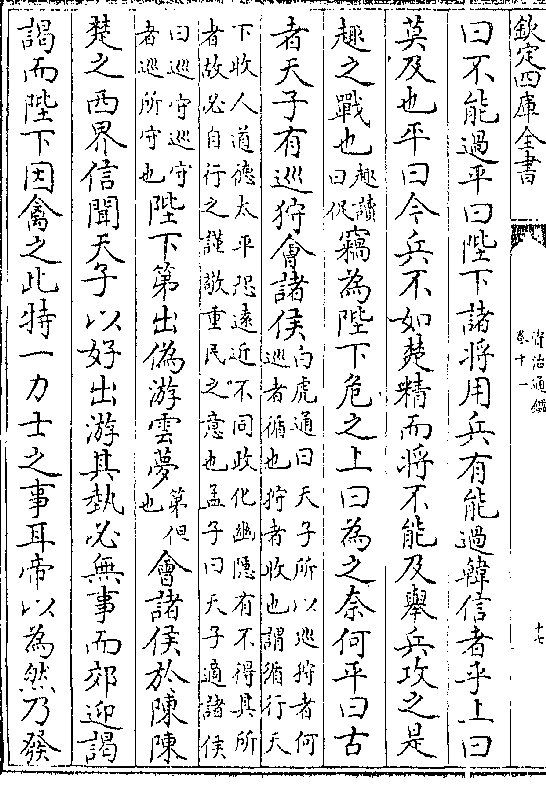 欽定四庫全書
資治通鑑
卷十一
十七
曰不能過平曰陛下諸將用兵有能過韓信者乎上曰
莫及也平曰今兵不如楚精而將不能及舉兵攻之是
趣之戰也趣讀
曰促竊為陛下危之上曰為之奈何平曰古
者天子有巡狩會諸侯白虎通曰天子所以巡狩者何
巡者循也狩者收也謂循行天
下收人道德太平恐遠近不同政化幽隱有不得其所
者故必自行之謹敬重民之意也孟子曰天子適諸侯
曰巡守巡守
者巡所守也陛下第出偽游雲夢第但
也會諸侯於陳陳
楚之西界信聞天子以好出游其埶必無事而郊迎謁
謁而陛下因禽之此特一力士之事耳帝以為然乃發